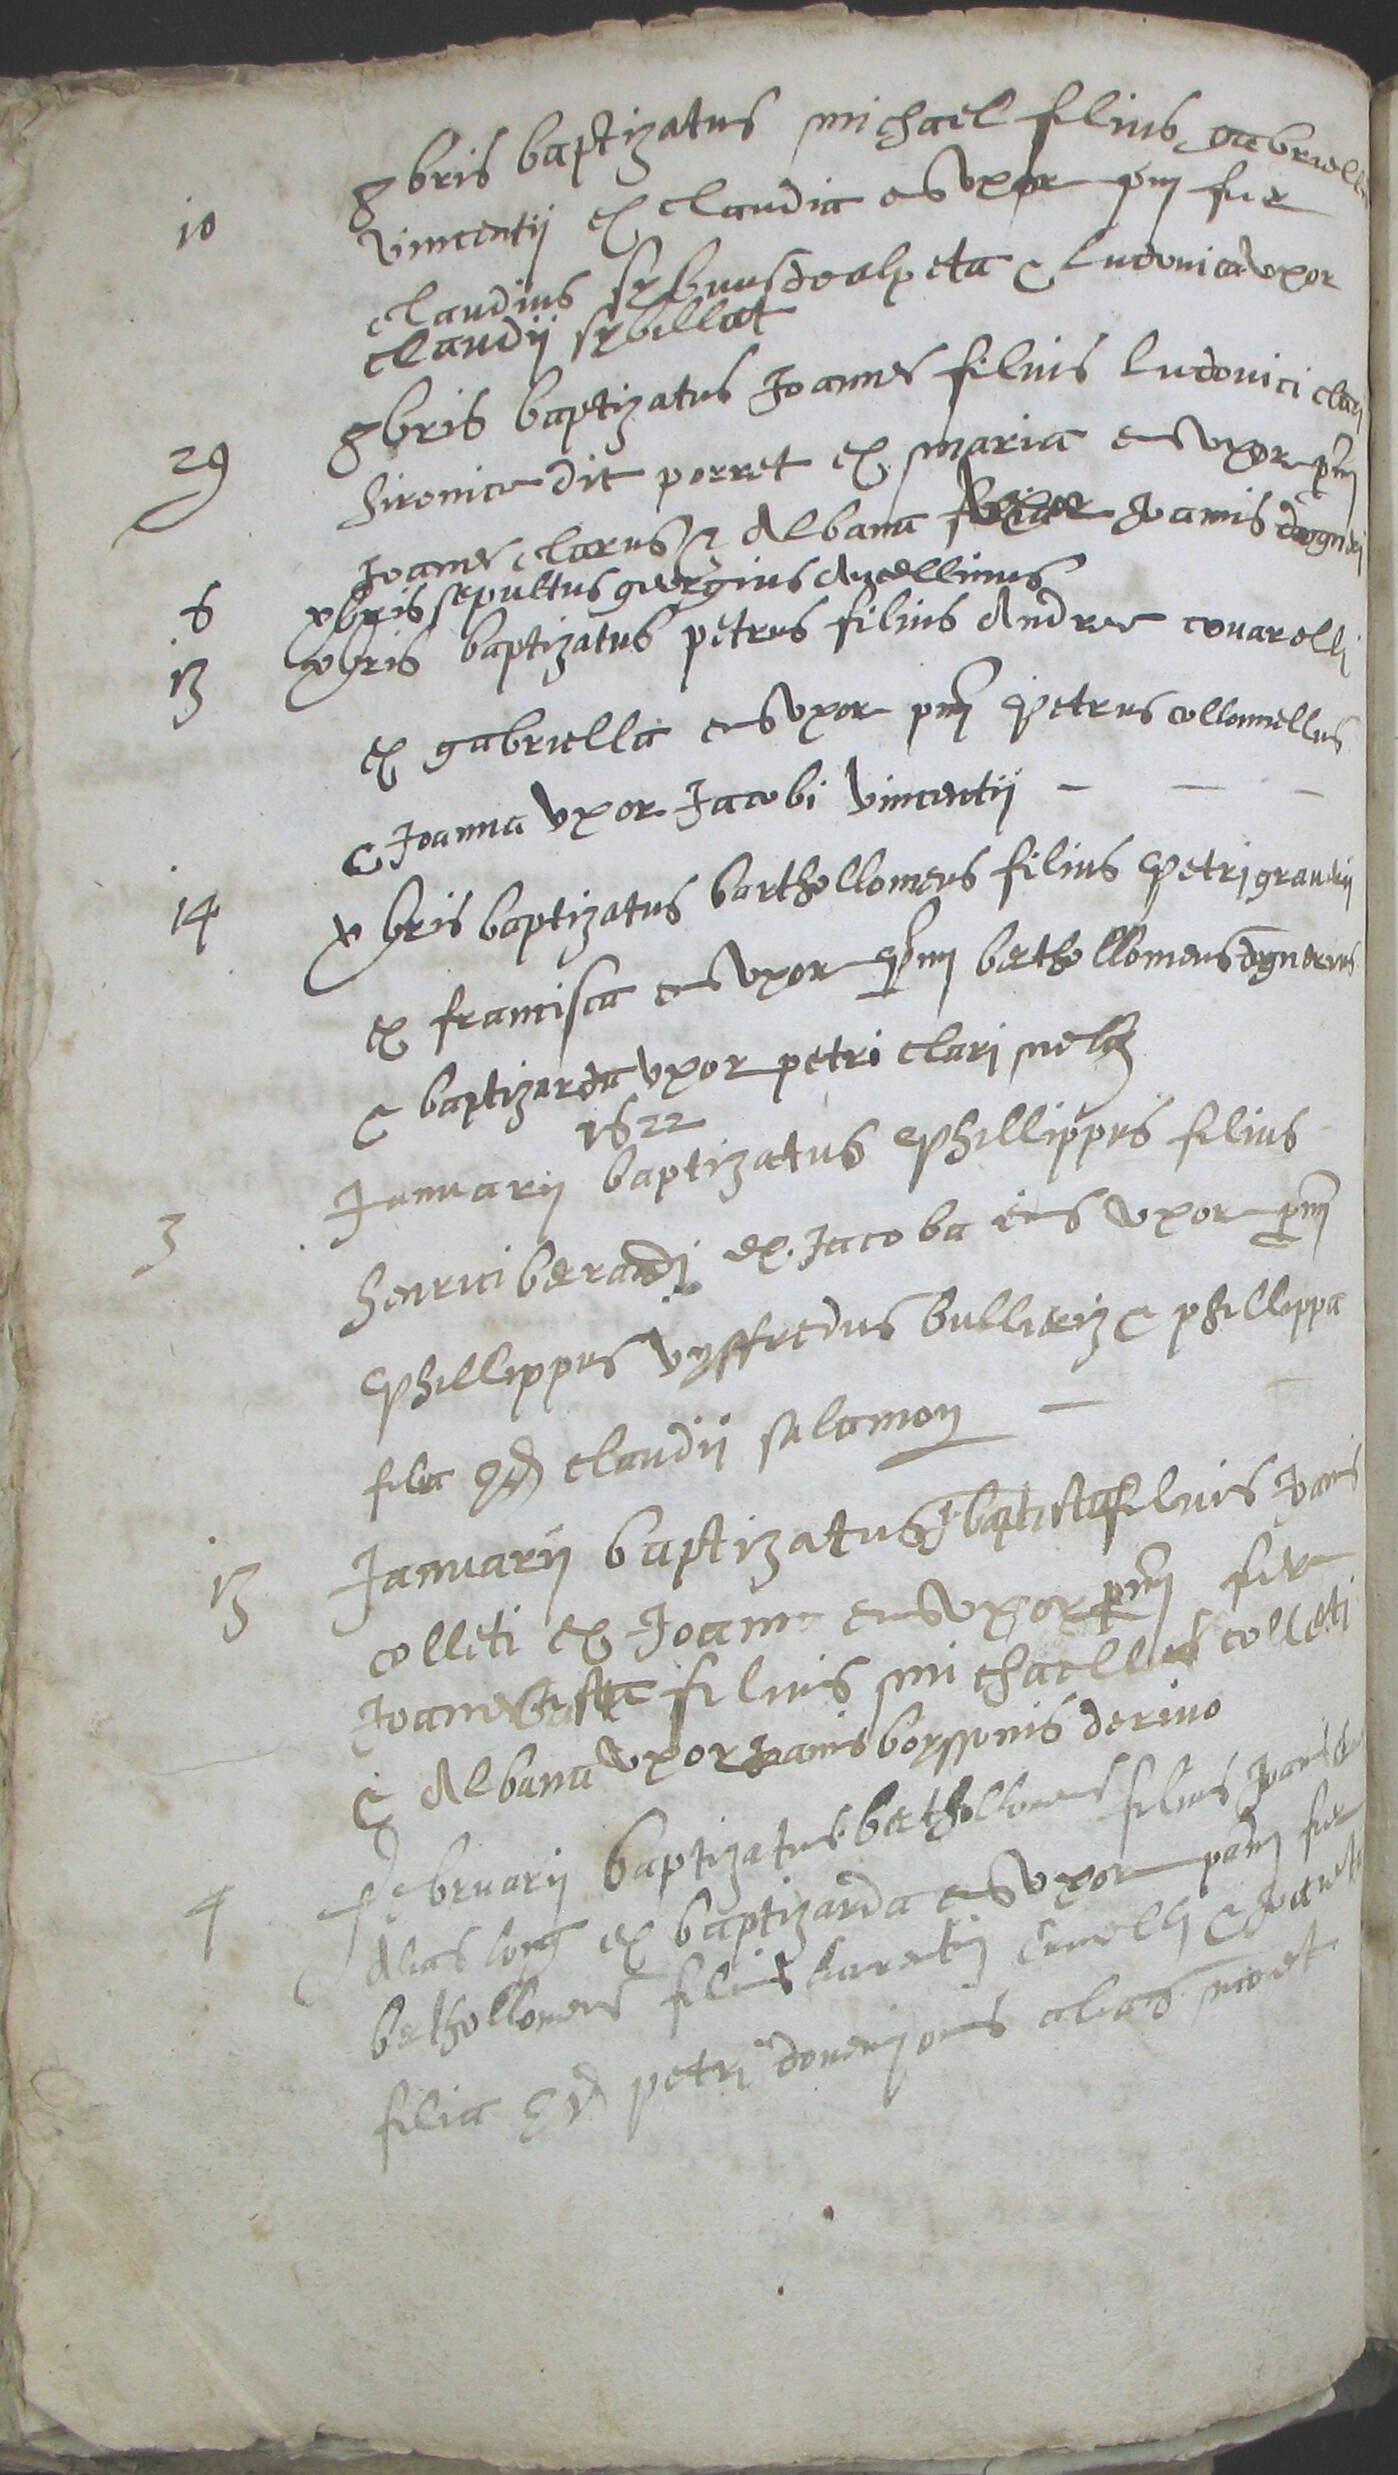 10 8bris baptizatus michael filius gabriellis
vincentii ex claudia eius uxor pnj fuer
claudius de alpeta & Ludovica uxor
claudii sybillat
29 8bris baptizatus Joannes filius Ludovici clarj
hironime dit porret ex maria eius uxor pnj
Joannes clarus & Albana Joanis
6 xbris sepultus georgius Avellinus
13 xbris baptizatus petrus filius Andree covarelli
ex gabriella eius uxor pnj Petrus collomellus
& Joanna uxor Jacobi vincentij
14 xbris baptizatus barthollomeus filius Petri grandij
ex francisca eius uxor pnj berthollomeus
& baptizarda uxor petri clarj
1622
3 Januarij baptizatus Phillippus filius
henrici berardj ex Jacoba eius uxor pnj
Phillippus vyffredus bulliety & phillippa
filia qd claudij salamon
13 Januarij baptizatus J baptista filius Joanis
colleti ex Joanna eius uxor pnj fuer
Joannes basta filius michaellis colleti
& Albana uxor Joanis boyssonis de rivo
4 februarij baptizatus berthollomeus filius Joanis
Alias long ex baptizarda eius uxor patnj fuer
berthollomeus filius Laurentij &
filia qd petri alias moret